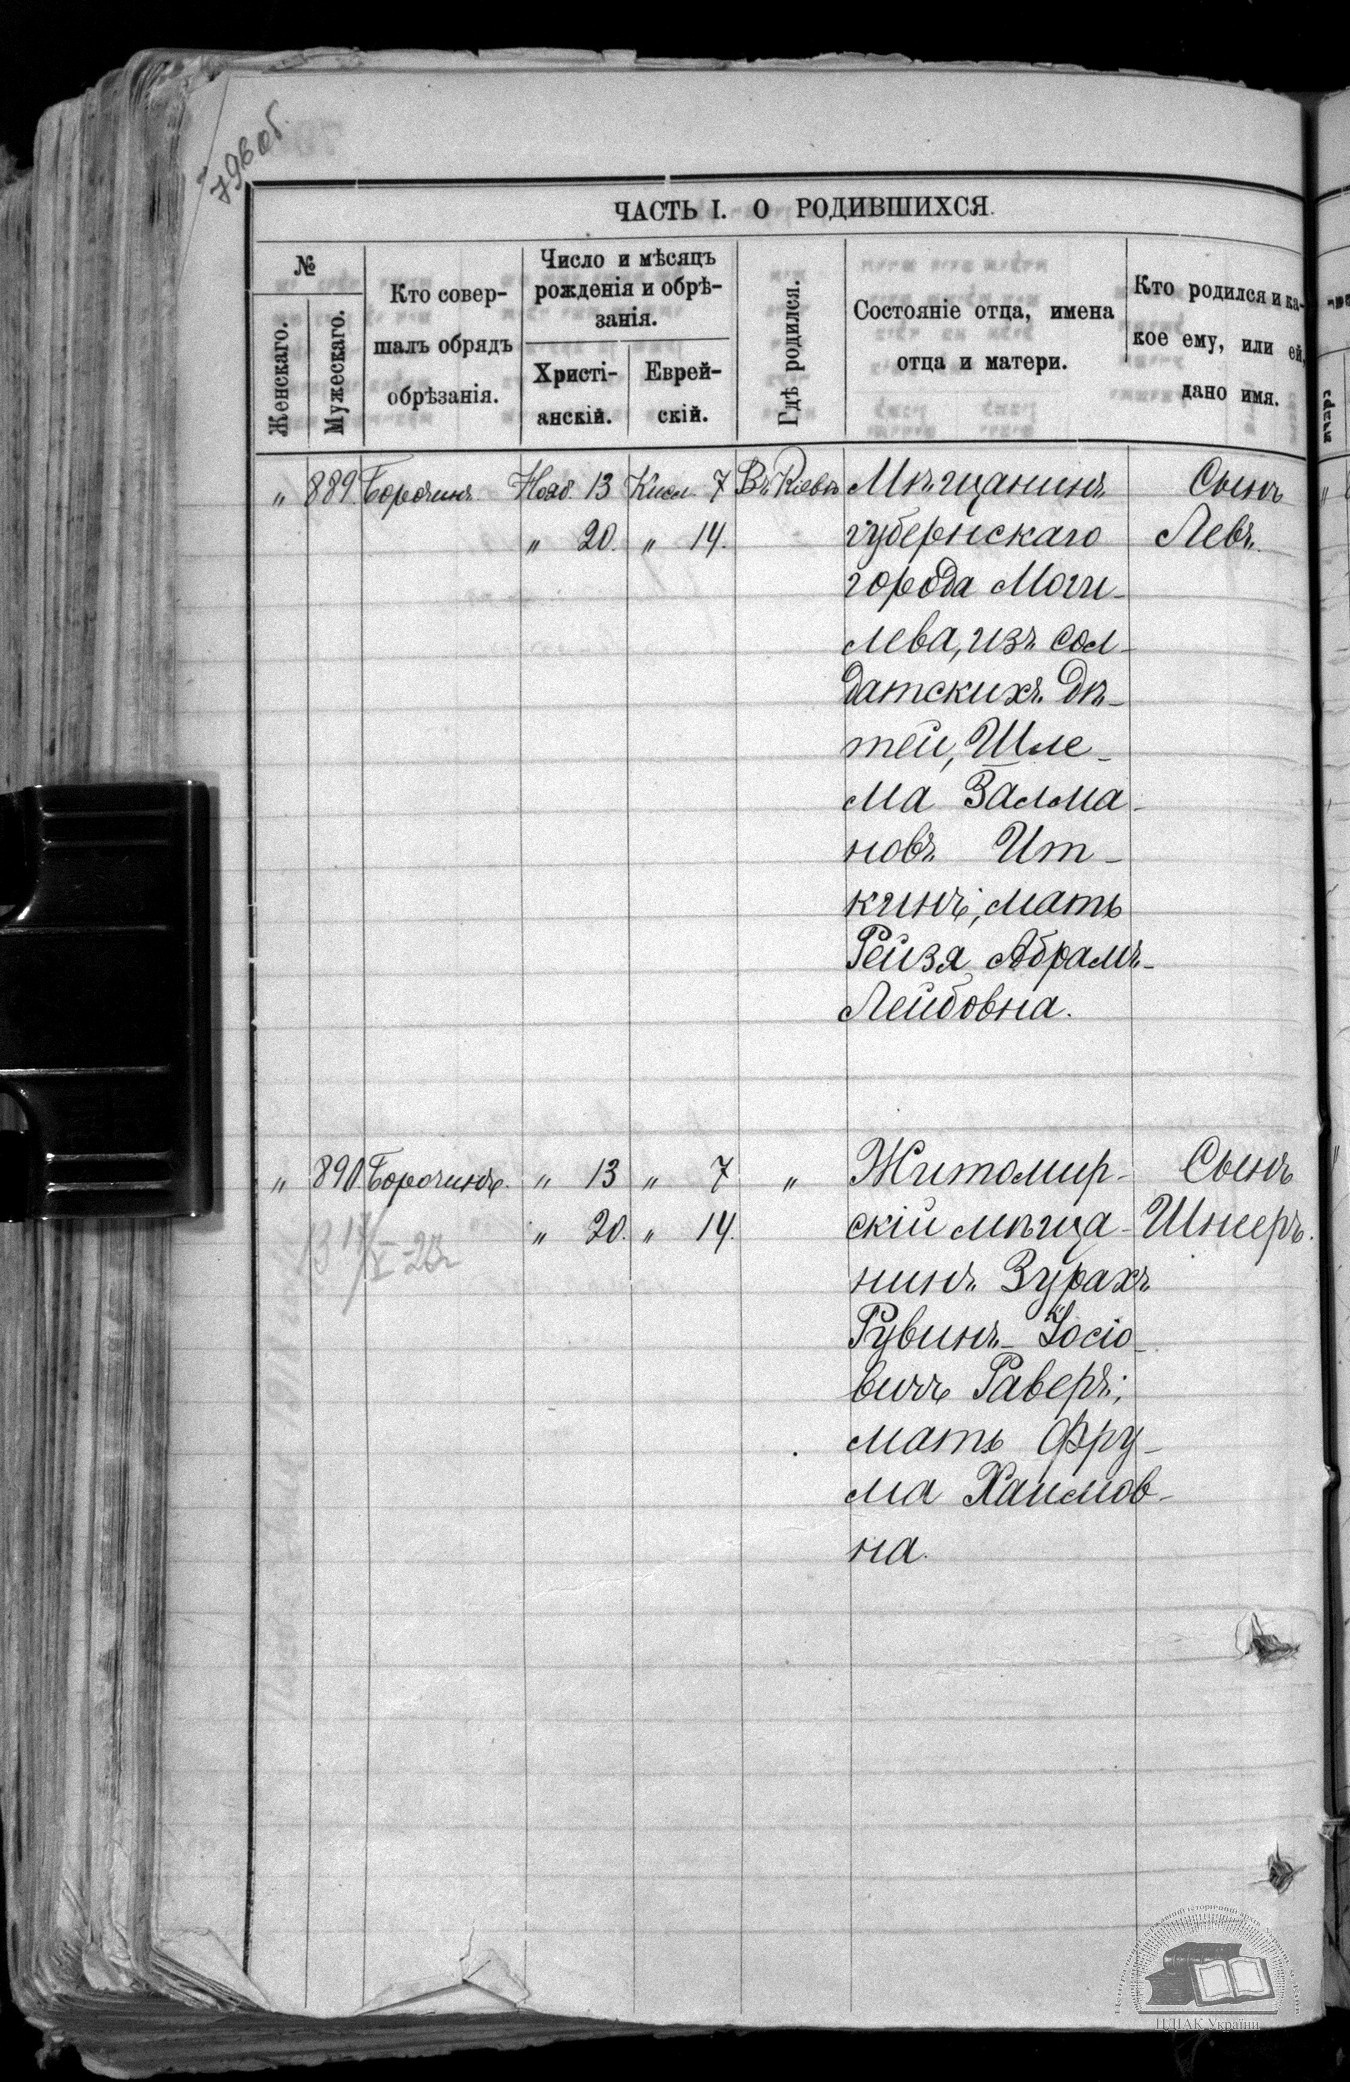 796 об.
ЧАСТЬ I. О РОДИВШИХСЯ.
№
Женскаго.
Мужескаго.
Кто совер-
шалъ обрядъ
обрѣзанія.
Число и мѣсяцъ
рожденія и обрѣ-
занія.
Христі-
анскій.
Еврей-
скій.
Гдѣ родился.
Состояніе отца, имена
отца и матери.
Кто родился и ка-
кое ему, или ей,
дано имя.
„ 889. Борочинъ. Нояб. 13 Кисл. 7 Въ Кіевѣ Мѣщанинъ Сынъ
„ 20. „ 14. губернскаго Левъ.
города Моги-
лева, изъ сол-
датскихъ дѣ-
тей, Шле-
ма Залма-
новъ Ит-
кинъ, мать
Рейзя Абрамъ-
Лейбовна.
„ 890. Борочинъ. „ 13 „ 7 „ Житомир- Сынъ
„ 20. „ 14. скій мѣща- Шнееръ.
нинъ Зурахъ
Рувинъ-Іосіо-
вичъ Раверъ;
мать Фру-
ма Хаимов-
на.
ЦДІАК України